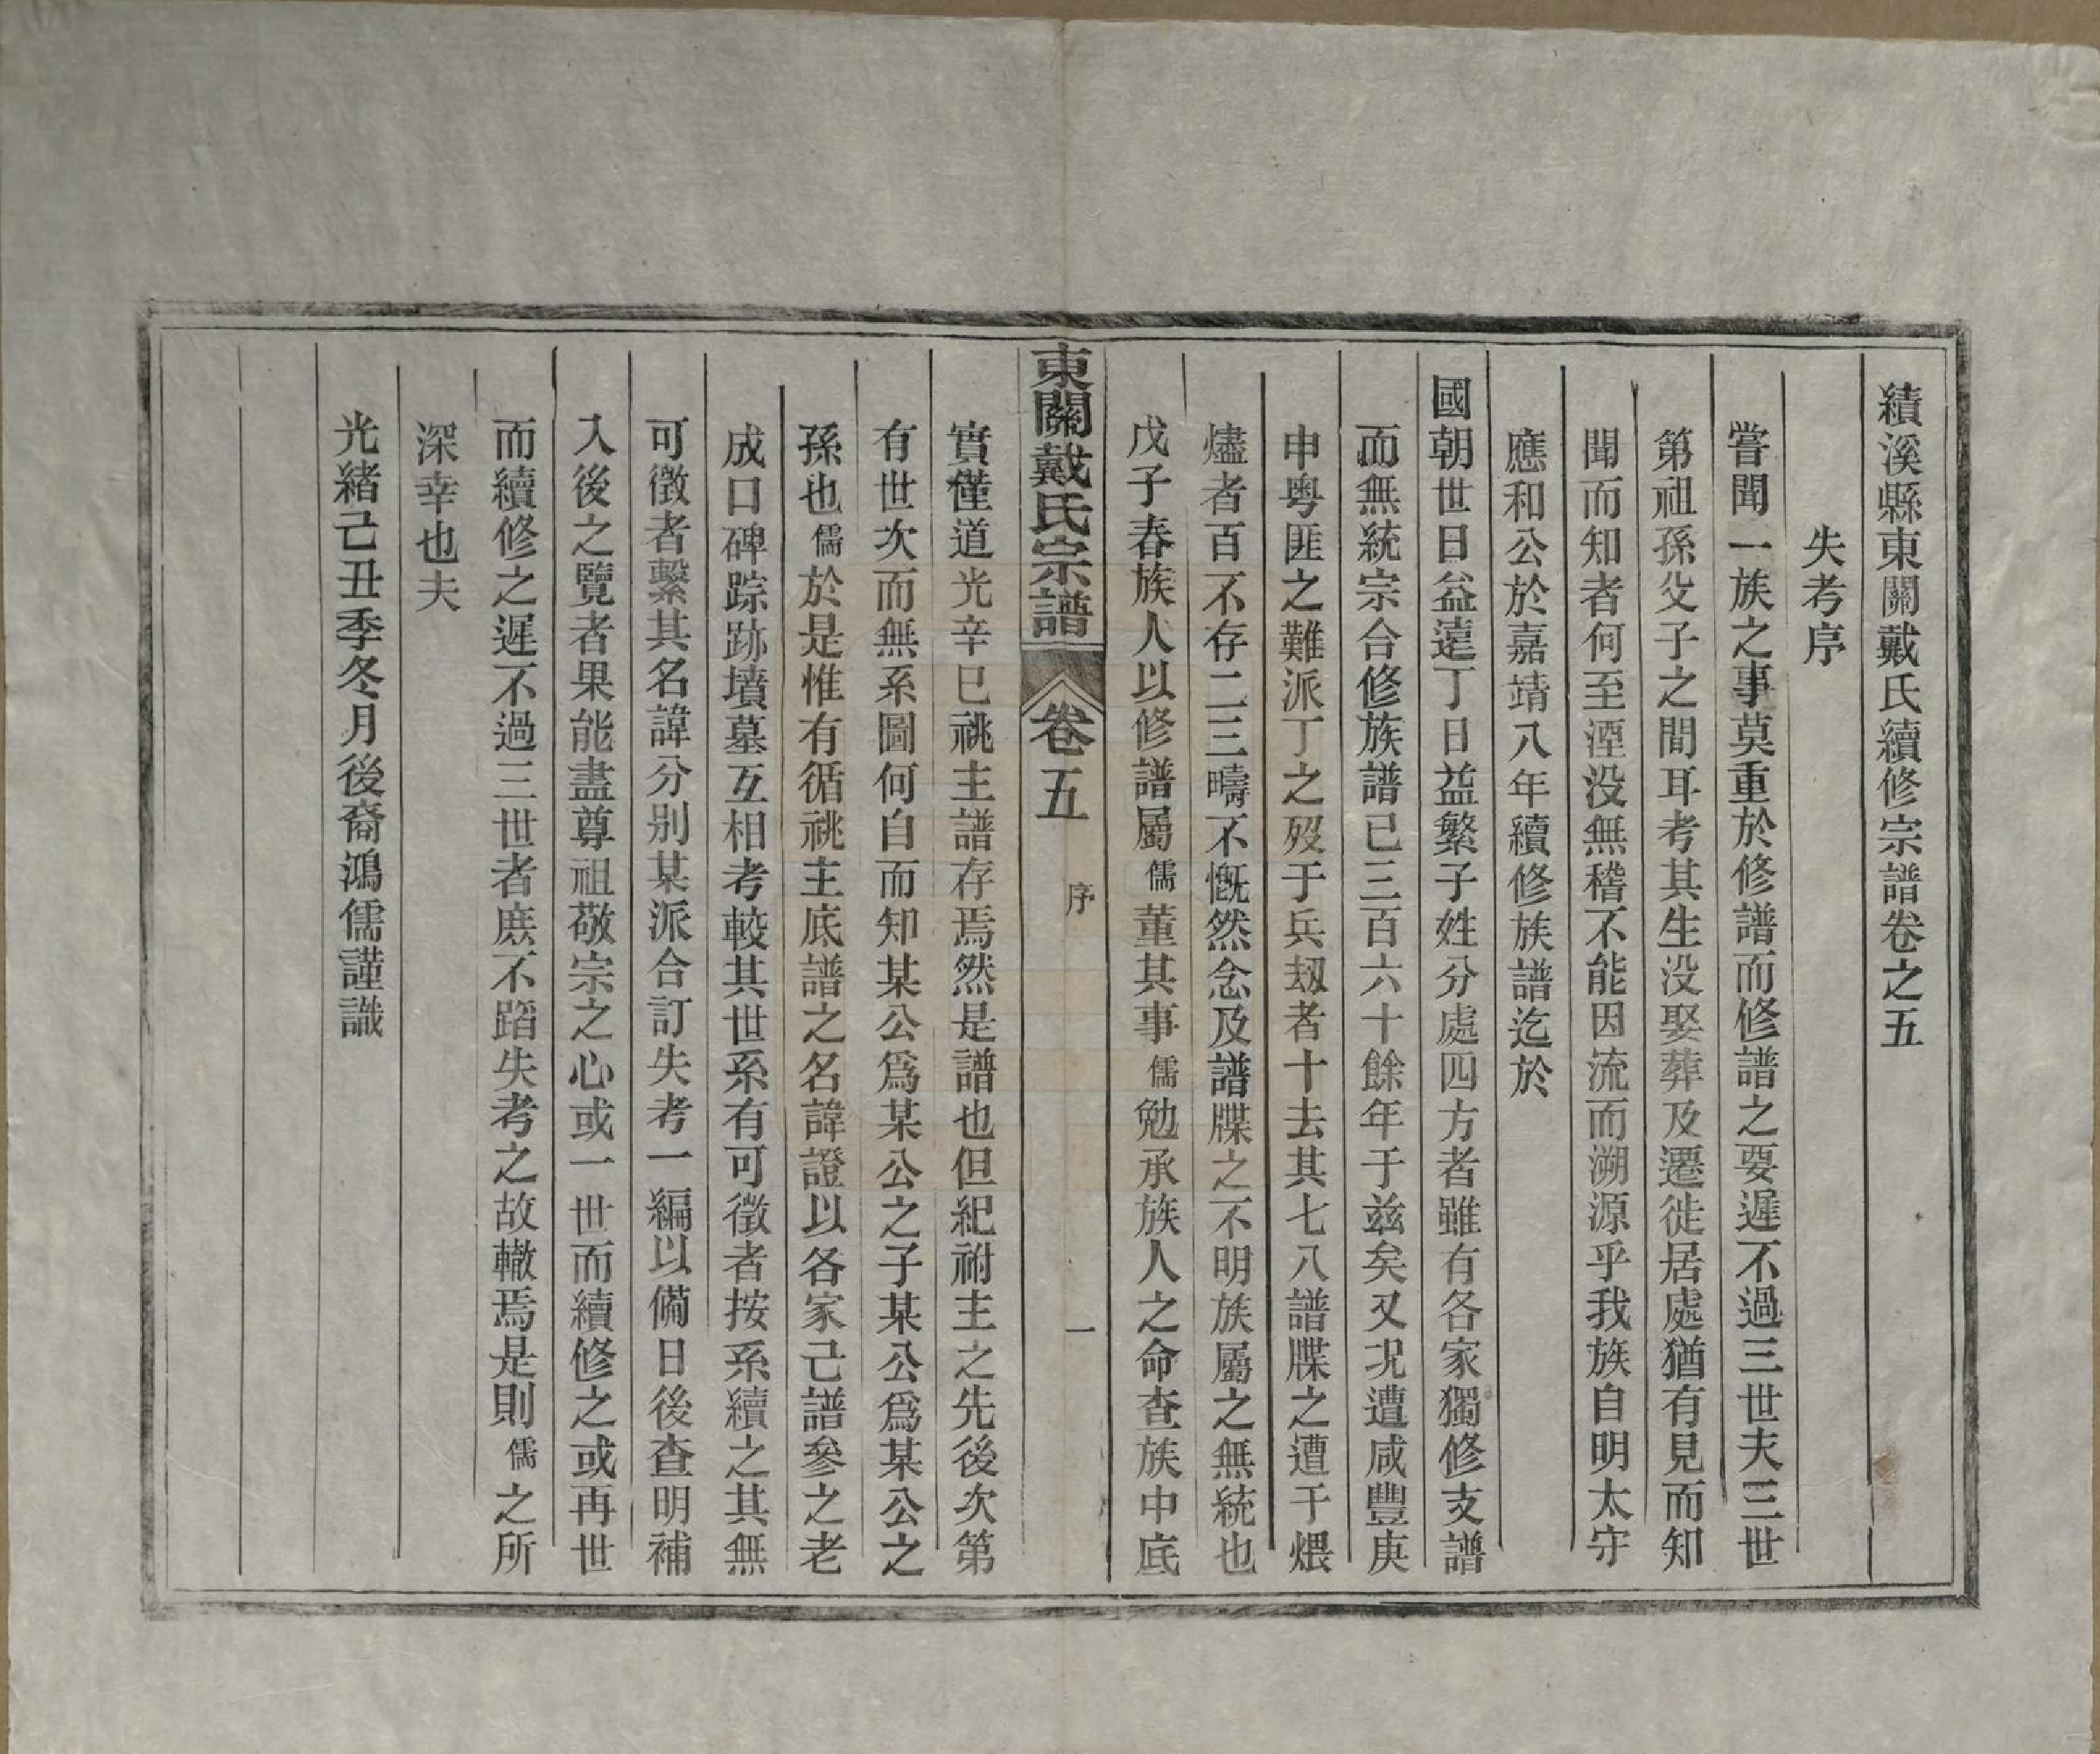 績溪縣東關戴氏續修宗譜卷之五
失考序
嘗聞一族之事莫重於修譜而修譜之要遲不過三世夫三世
第祖孫父子之間耳考其生没娶葬及遷徙居處猶有見而知
聞而知者何至湮没無稽不能因流而溯源乎我族自明太守
應和公於嘉靖八年續修族譜迄於
國朝世日益遠丁日益繁子姓分處四方者雖有各家獨修支譜
而無統宗合修族譜已三百六十餘年于兹矣又况遭咸豐庚
申粤匪之難派丁之歿于兵刼者十去其七八譜牒之遭于煨
燼者百不存二三疇不慨然念及譜牒之不明族屬之無統也
戊子春族人以修譜屬儒董其事儒勉承族人之命查族中底
東關戴氏宗譜 卷五 序 一
實僅道光辛巳祧主譜存焉然是譜也但紀祔主之先後次第
有世次而無系圖何自而知某公爲某公之子某公爲某公之
孫也儒於是惟有循祧主底譜之名諱證以各家己譜參之老
成口碑踪跡墳墓互相考較其世系有可徵者按系續之其無
可徵者繫其名諱分别某派合訂失考一編以備日後查明補
入後之覽者果能盡尊祖敬宗之心或一世而續修之或再世
而續修之遲不過三世者庶不蹈失考之故轍焉是則儒之所
深幸也夫
光緒己丑季冬月後裔鴻儒謹識